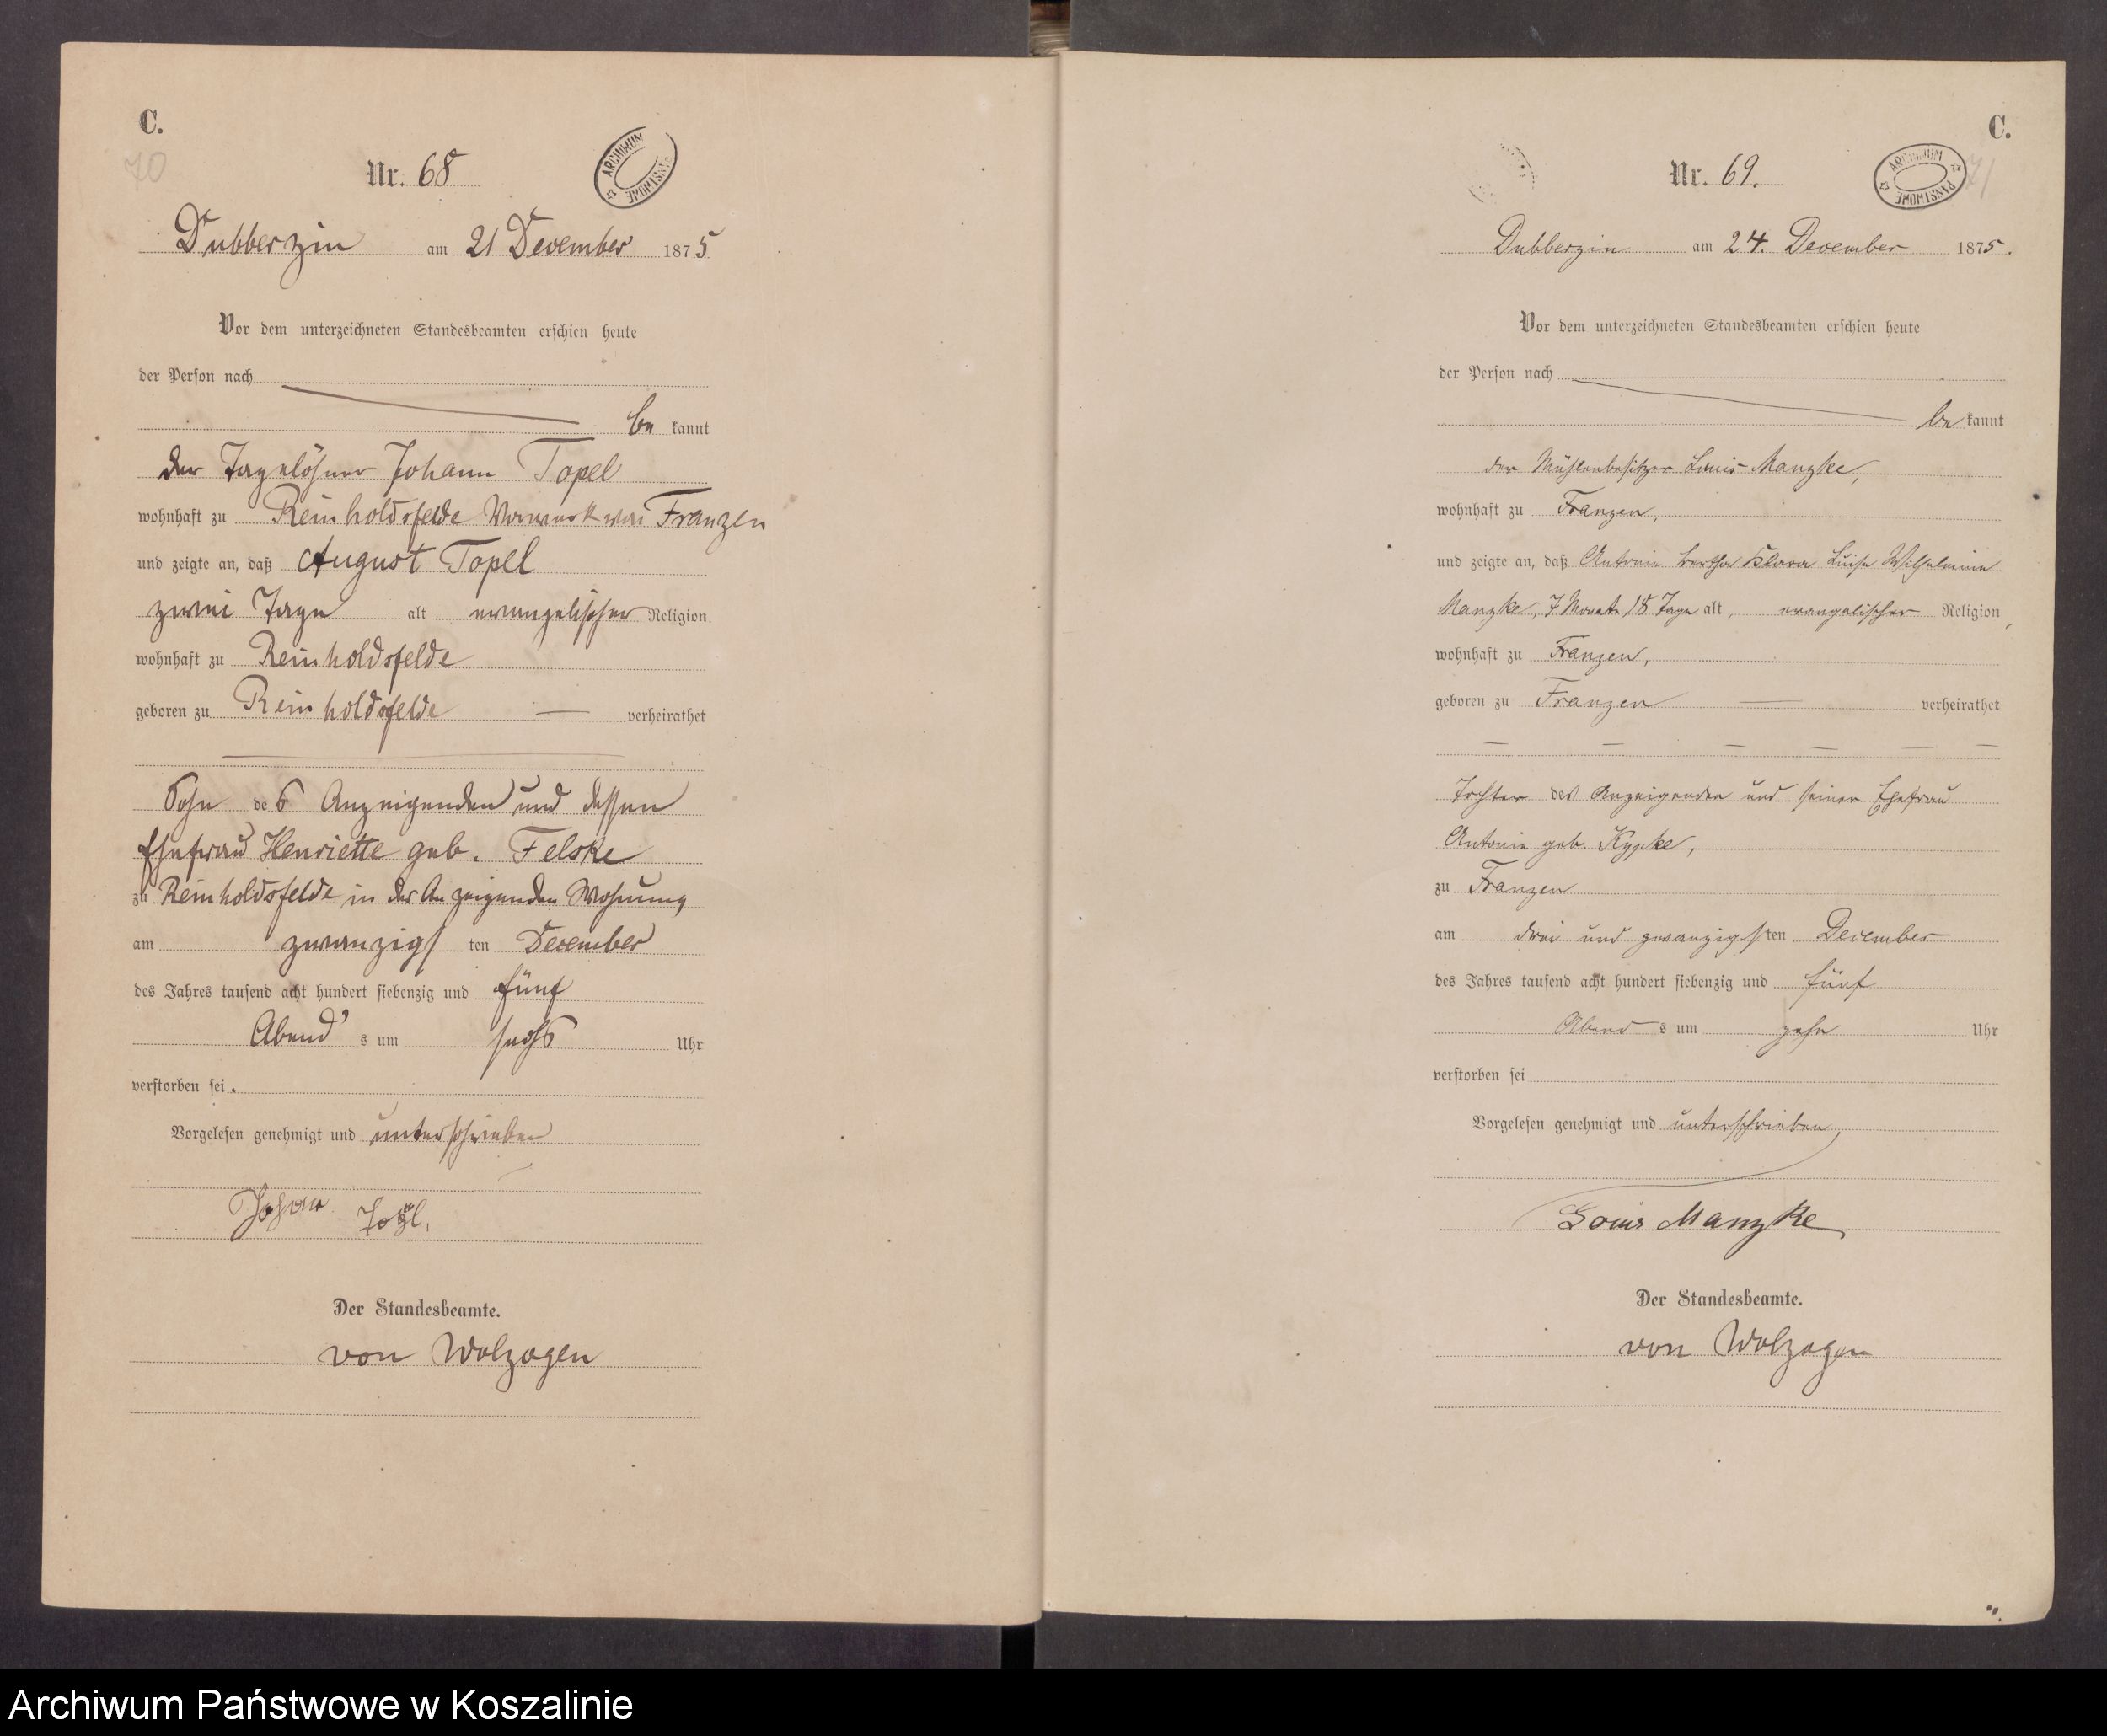 C.
70
Nr. 68
ARCHIWUM PAŃSTWOWE
Dubberzin am 21 December 1875
Vor dem unterzeichneten Standesbeamten erschien heute
der Person nach
be kannt
der Tagelöhner Johann Topel
wohnhaft zu Reinholdsfelde Vorwerk von Franzen
und zeigte an, daß August Topel
zwei Tage alt evangelischer Religion
wohnhaft zu Reinholdsfelde
geboren zu Reinholdsfelde — verheirathet
Sohn des Anzeigenden und dessen
Ehefrau Henriette geb. Felske
zu Reinholdsfelde in des Anzeigenden Wohnung
am zwanzigsten December
des Jahres tausend acht hundert siebenzig und fünf
Abend s um sechs Uhr
verstorben sei.
Vorgelesen genehmigt und unterschrieben
Johan
Der Standesbeamte.
von Wolzogen
C.
71
Nr. 69.
ARCHIWUM PAŃSTWOWE
Dubberzin am 24. December 1875.
Vor dem unterzeichneten Standesbeamten erschien heute
der Person nach
be kannt
der Mühlenbesitzer Louis Manzke,
wohnhaft zu Franzen,
und zeigte an, daß Antonie Bertha Klara Luise Wilhelmine
Manzke, 7 Monate 18 Tage alt, evangelischer Religion,
wohnhaft zu Franzen,
geboren zu Franzen — verheirathet
— — — — — —
Tochter des Anzeigenden und seiner Ehefrau
Antonie geb. Kypke,
zu Franzen
am drei und zwanzigsten December
des Jahres tausend acht hundert siebenzig und fünf
Abend s um zehn Uhr
verstorben sei
Vorgelesen genehmigt und unterschrieben,
Louis Manzke
Der Standesbeamte.
von Wolzogen
Archiwum Państwowe w Koszalinie